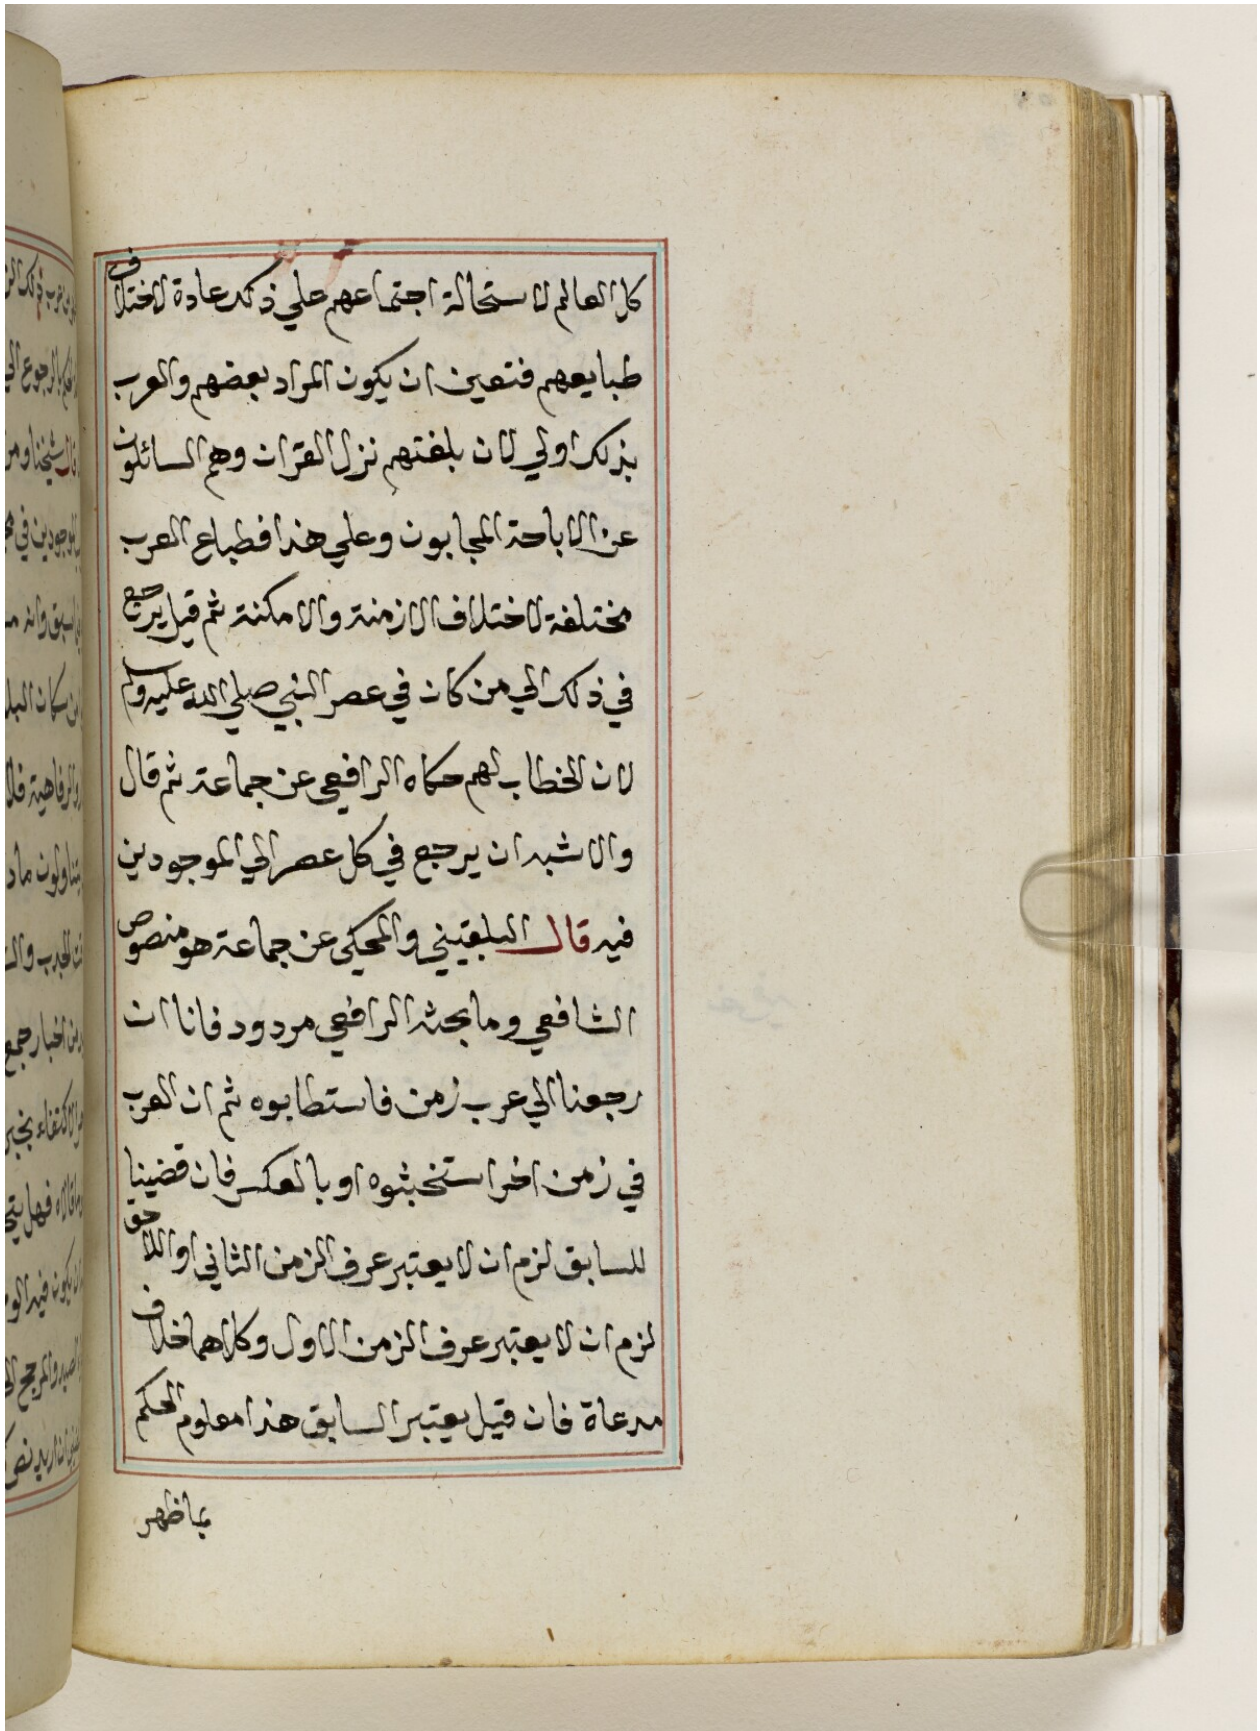 كل العالم لاستحالة اجتماعهم علي ذلك عادة لاختلاف
طبايعهم فتعين ان يكون المراد بعضهم والعرب
بذلك اولي لان بلغتهم نزل القران وهم السائلون
عن الاباحة المجابون وعلي هذا فطباع العرب
مختلفة لاختلاف الازمنة والامكنة ثم قيل يرجع
في ذلك الي من كان في عصر النبي صلي الله عليه وسلم
لان الخطاب لهم حكاه الرافعي عن جماعة ثم قال
والاشبه ان يرجع في كل عصر الي الموجودين
فيه قال البلقيني والمحكي عن جماعة هو منصوص
الشافعي وما بحثه الرافعي مردود فانا ان
رجعنا الي عرب زمن فاستطابوه ثم ان العرب
في زمن اخر استخبثوه او بالعكس فان قضينا
للسابق لزم ان لا يعتبر عرف الزمن الثاني او اللاحق
لزم ان لا يعتبر عرف الزمن الاول وكلاهما خلاف
مدعاة فان قيل يعتبر السابق هذا معلوم الحكم
بماظهر